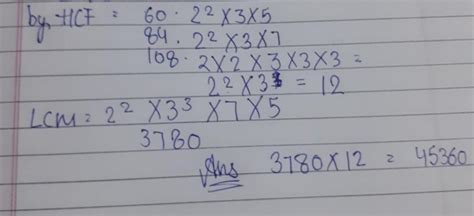 by, HCF = 60 · 2² × 3 × 5
84 · 2² × 3 × 7
108 · 2 × 2 × 3 × 3 × 3 =
2² × 3 = 12
LCM = 2² × 3³ × 7 × 5
3780
Ans 3780 × 12 = 45360